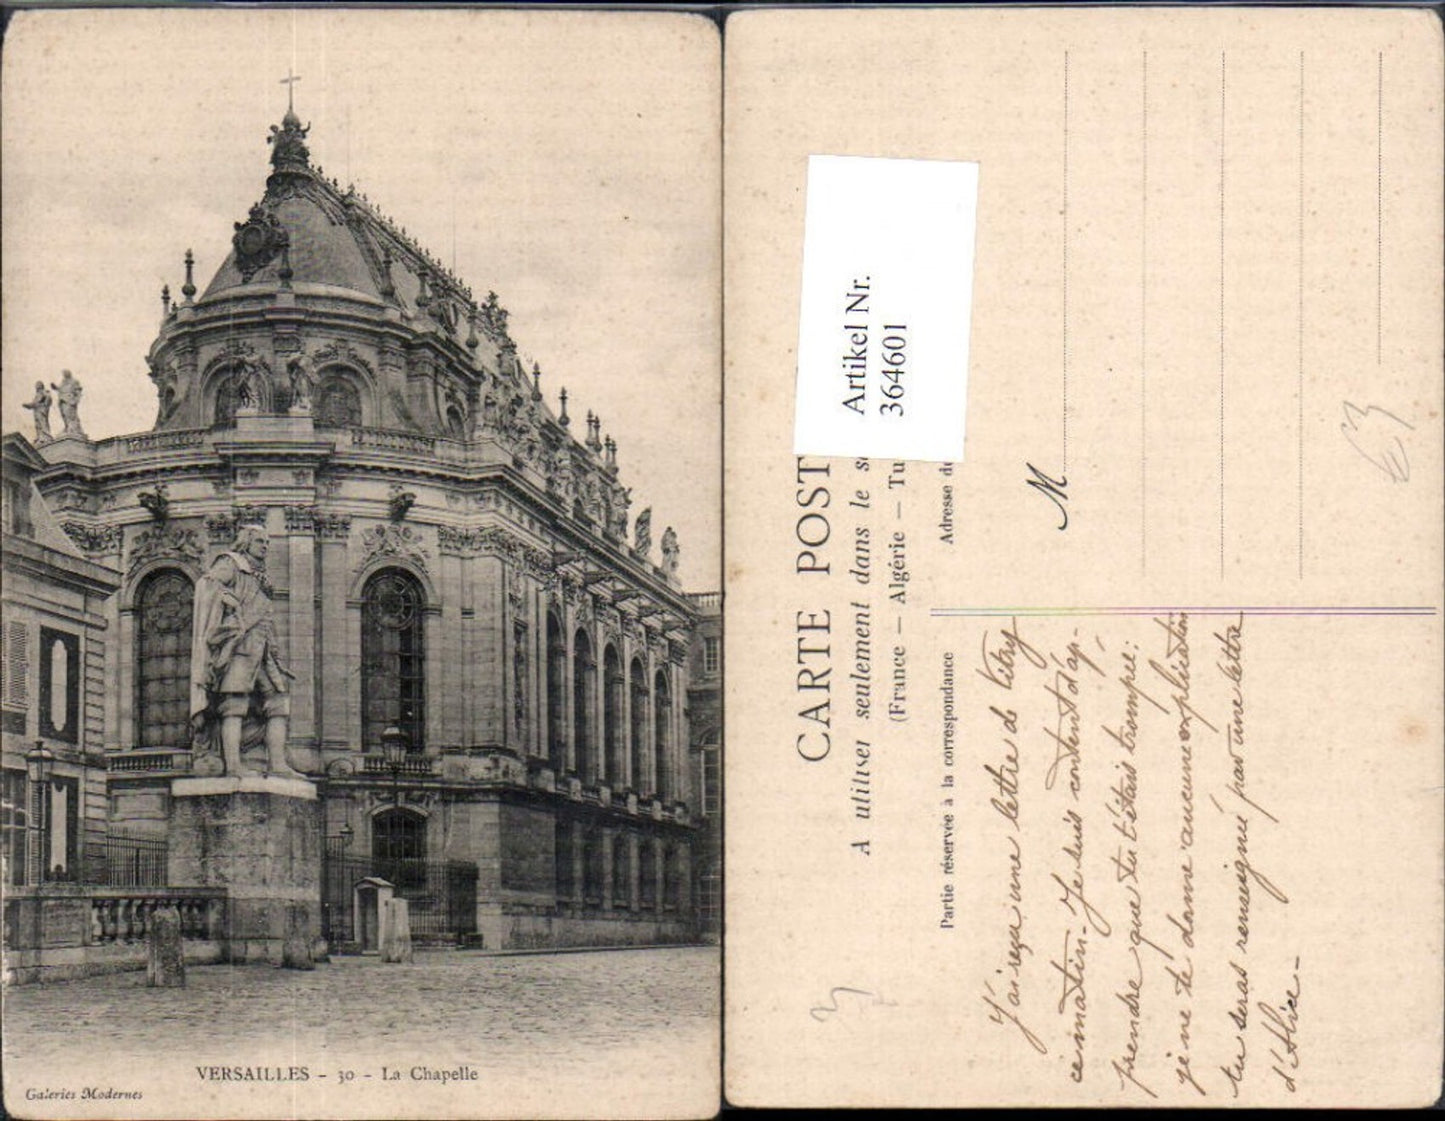 VERSAILLES - 30 - La Chapelle
Galeries Modernes
CARTE POST
A utiliser seulement dans le se
(France — Algérie — Tu
Partie réservée à la correspondance
Adresse de
Artikel Nr.
364601
M
J'ai reçu une lettre de Vitry
ce matin - Je suis content d'ap-
prendre que tu t'étais trompé;
je ne te donne aucune explication
tu seras renseigné par une lettre
d'Alice -